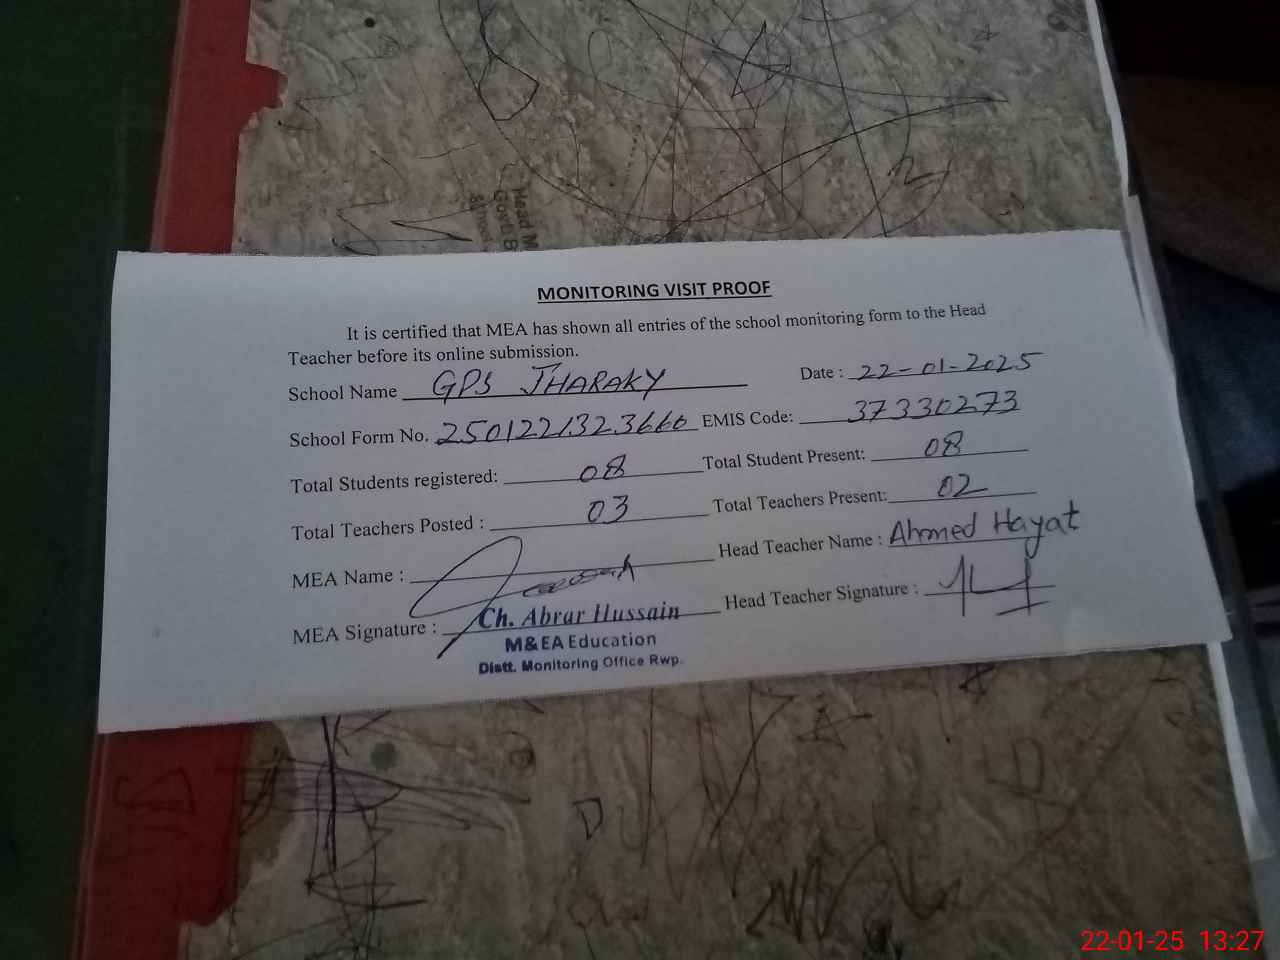 Head M
Govt. B
MONITORING VISIT PROOF
It is certified that MEA has shown all entries of the school monitoring form to the Head
Teacher before its online submission.
School Name GPS JHARAKY Date : 22-01-2025
School Form No. 2501221323660 EMIS Code: 37330273
Total Students registered: 08 Total Student Present: 08
Total Teachers Posted : 03 Total Teachers Present: 02
MEA Name : Head Teacher Name : Ahmed Hayat
MEA Signature : Ch. Abrar Hussain Head Teacher Signature :
M&EA Education
Distt. Monitoring Office Rwp.
22-01-25 13:27